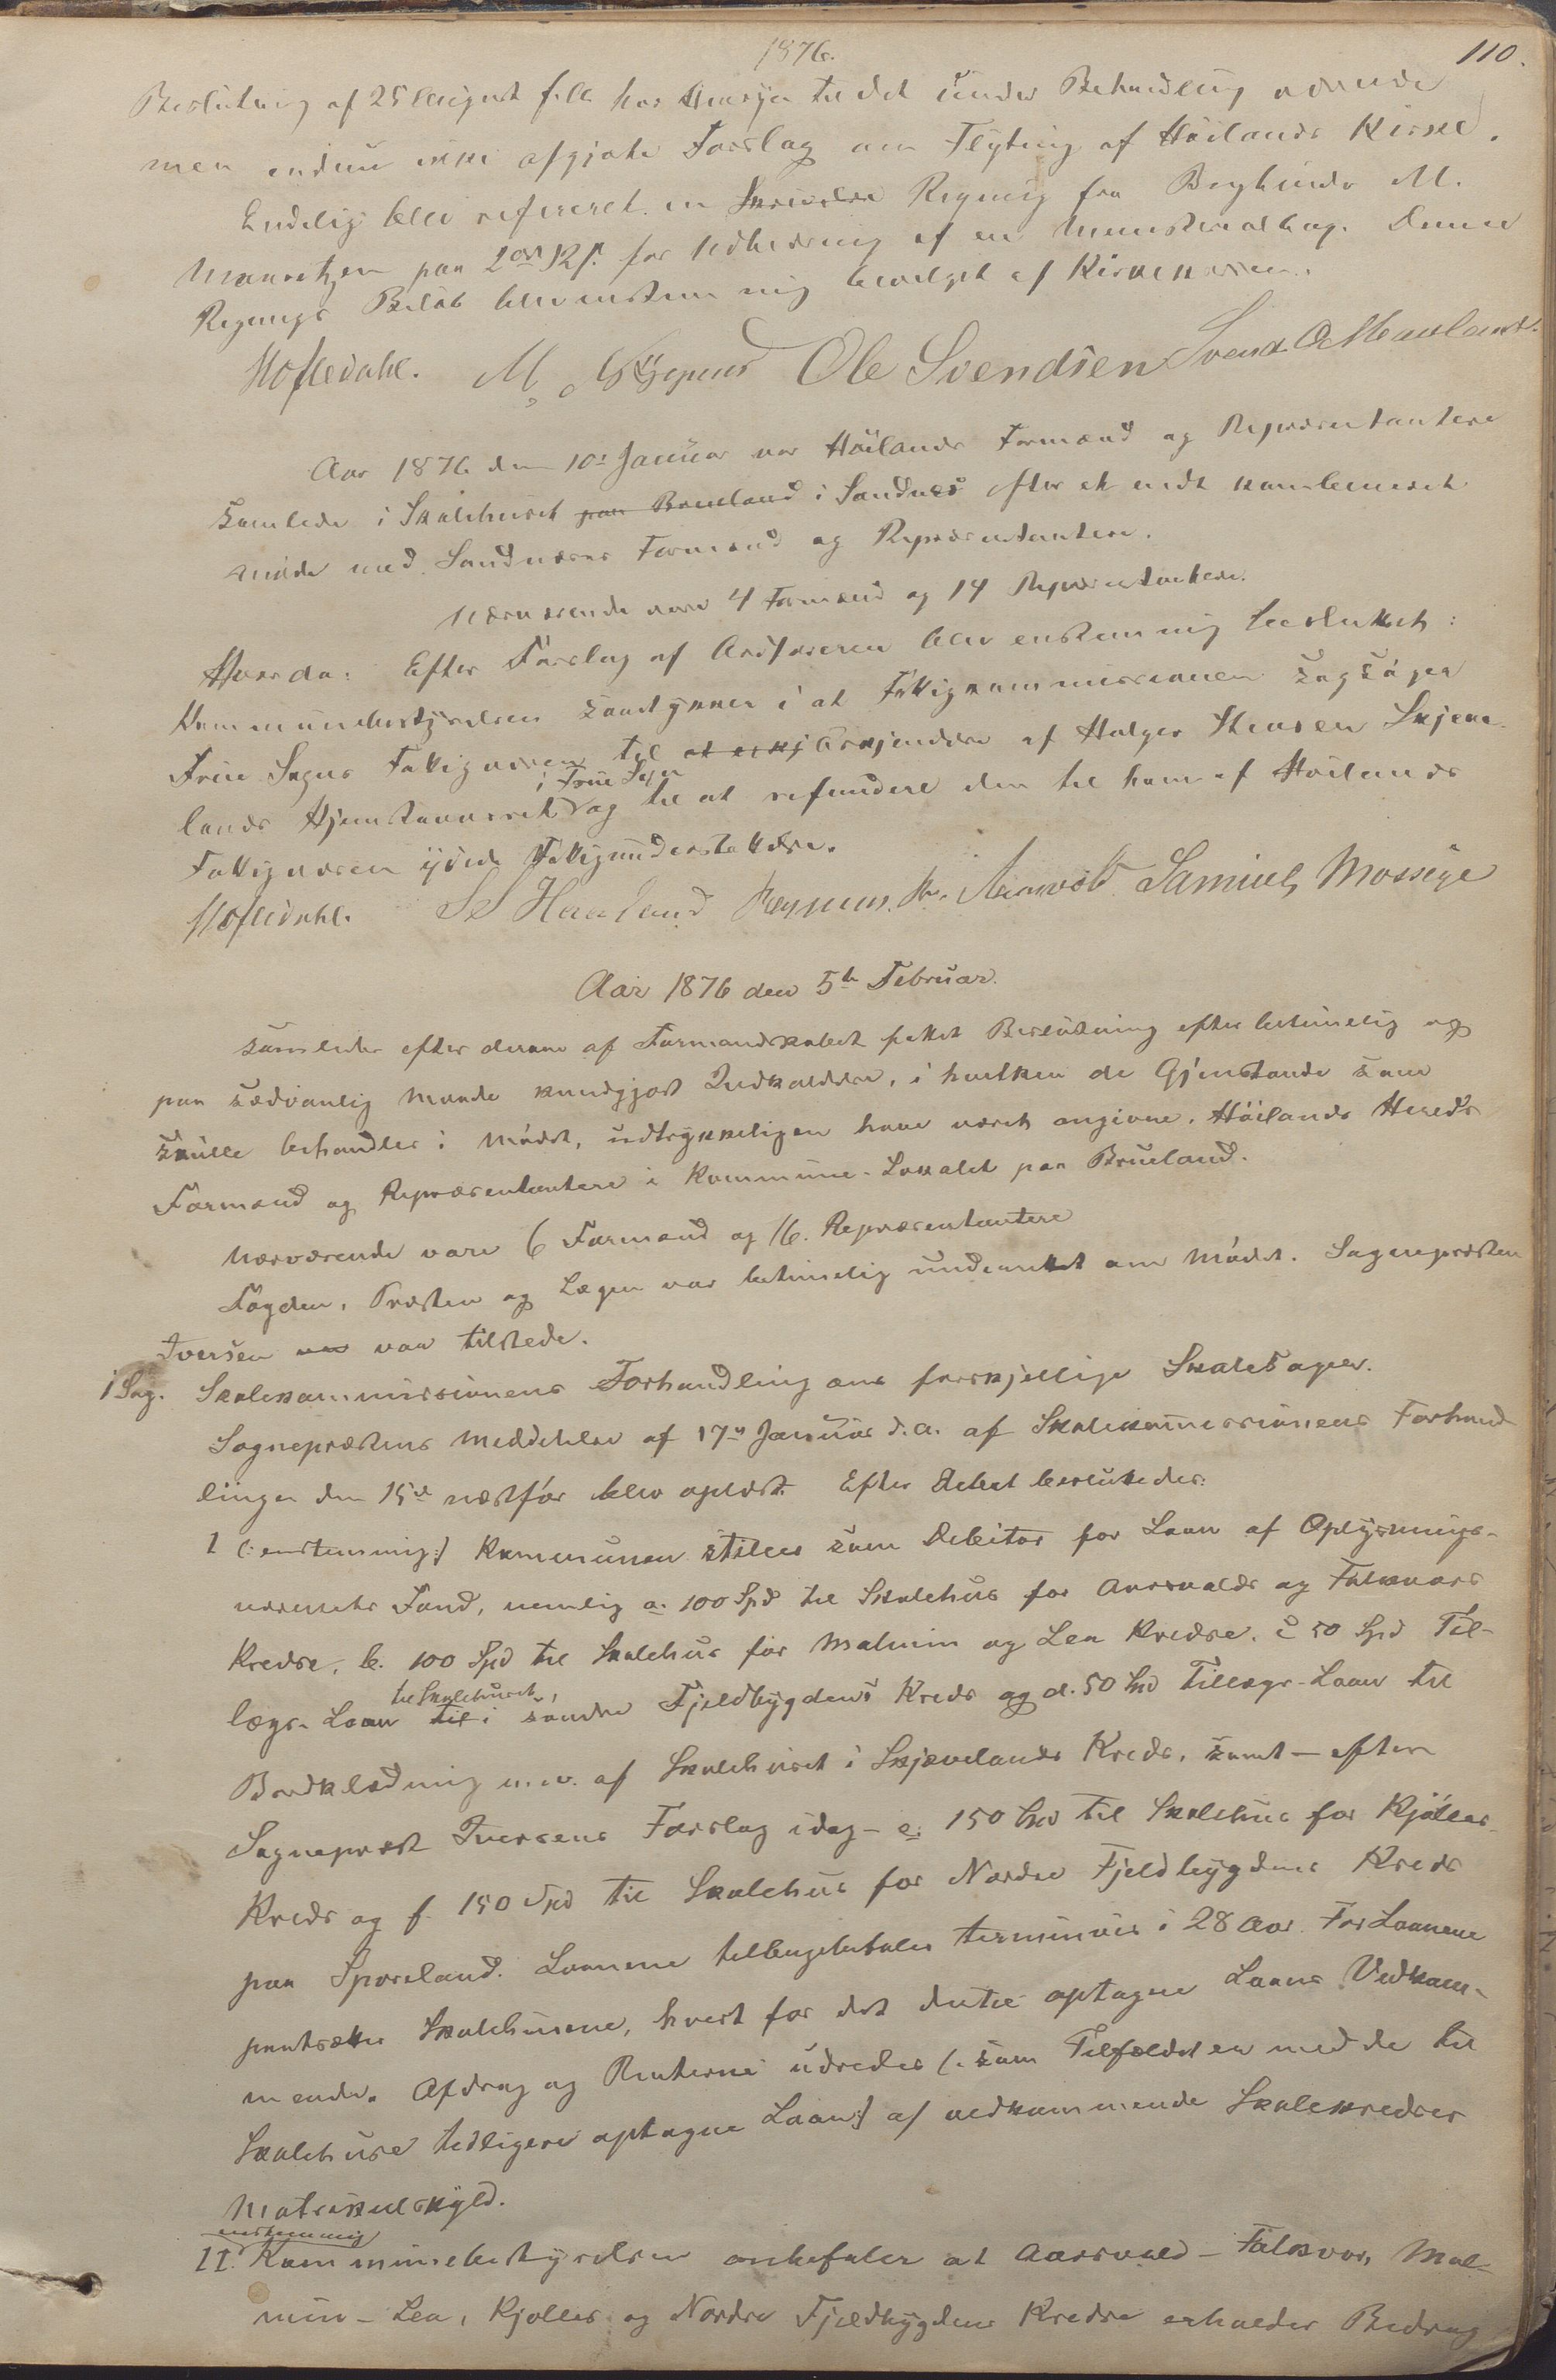 1876.
110.
Beslutning af 25 August f.A. har Hensyn til det under Behandling værende
men endnu ikke afgjorte Forslag om Flytning af Høilands Kirke.
Endelig blev refereret en Regning fra Boghandl. M.
paa 2 ort 12 s. for Udbedring af en Denne
Regnings Beløb blev enstemmig bevilget af Kirkekassen.
Ole Svendsen Svend O. Mauland.
Aar 1876 den 10de Januar var Høilands Formænd og Repræsentantere
samlede i Skolehuset paa Brueland i Sandnæs efter et endt kombineret
møde med Sandnæses Formænd og Repræsentantere.
Nærværende vare 4 Formænd og 14 Repræsentantere.
Hvorda: Efter Forslag af Ordføreren blev enstemmig besluttet:
Kommunebestyrelsen samtykker i at Fattigkommissionen sagsøger
Frue Sogns Fattigvæsen til Erkjendelse af Holger Hansen Skjæve-
lands Hjemstavnsret i Frue Sogn og til at refundere den til ham af Høilands
Fattigvæsen ydede Fattigunderstøttelse.
Haaland Samuel Mossige
Aar 1876 den 5te Februar.
samledes efter derom af Formandskabet fattet Beslutning efter betimelig og
paa sædvanlig Maade kundgjort Indkaldelse, i hvilken de Gjenstande som
skulle behandles i Mødet, udtrykkeligen have været angivne, Høilands Hereds
Formænd og Repræsentantere i Kommune-Lokalet paa Brueland.
Nærværende vare 6 Formænd og 16 Repræsentantere
Fogden, Præsten og Lægen var betimelig underrettet om Mødet. Sognepræsten
Iversen var tilstede.
1 Sag. Skolekommissionens Forhandling om forskjellige Skolesager.
Sognepræstens Meddelelse af 17de Januar d.A. af Skolekommissionens Forhand-
linger den 15de næstfør blev oplæst. Efter Debat besluttedes:
I (:enstemmig:) Kommunen stilles som Debitor for Laan af Oplysnings-
væsenets Fond, nemlig a. 100 Spd til Skolehus for Aarsvolds og Foss
Kredse, b. 100 Spd til Skolehus for Malmin og Lea Kredse, c 50 Spd Til-
lægs-Laan til til Skolehuset i søndre Fjeldbygdens Kreds og d. 50 Spd Tillægs-Laan til
Bordklædning m.v. af Skolehuset i Skjævelands Kreds, samt – efter
Sognepræst Iversens Forslag idag – e. 150 Spd til Skolehus for Kjølles
Kreds og f. 150 Spd til Skolehus for Nordre Fjeldbygdens Kreds
paa Sporeland. Laanene tilbagebetales terminvis i 28 Aar. For Laanene
pantsættes Skolehusene, hvert for det dertil optagne Laans Vedkom-
mende. Afdrag og Renterne udredes (:som Tilfældet er med de til
Skolehuse tidligere optagne Laan:) af vedkommende Skolekredses
Matrikulskyld.
enstemmig
II. Kommunebestyrelsen anbefaler at Aarsvold – Mal-
min – Lea, Kjølles og Nordre Fjeldbygdens Kredse erholder Bidrag